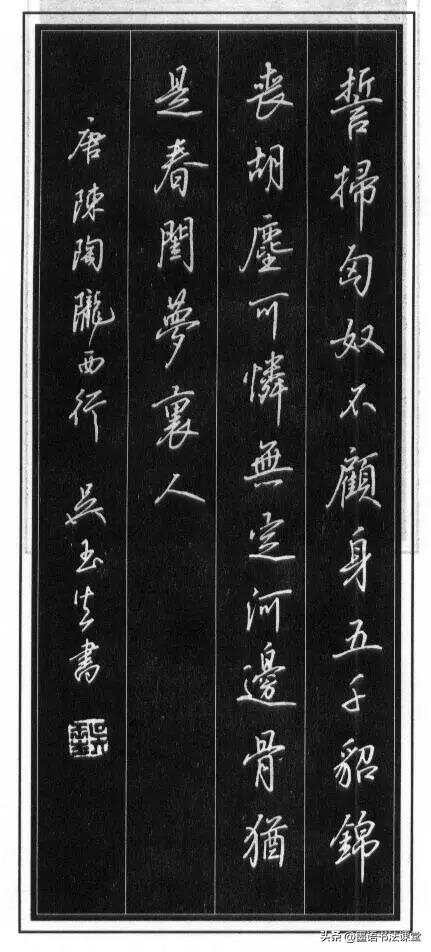 誓掃匈奴不顧身五千貂錦
喪胡塵可憐無定河邊骨猶
是春閨夢裏人
唐陳陶隴西行 吳玉生書
头条 @语书法课堂